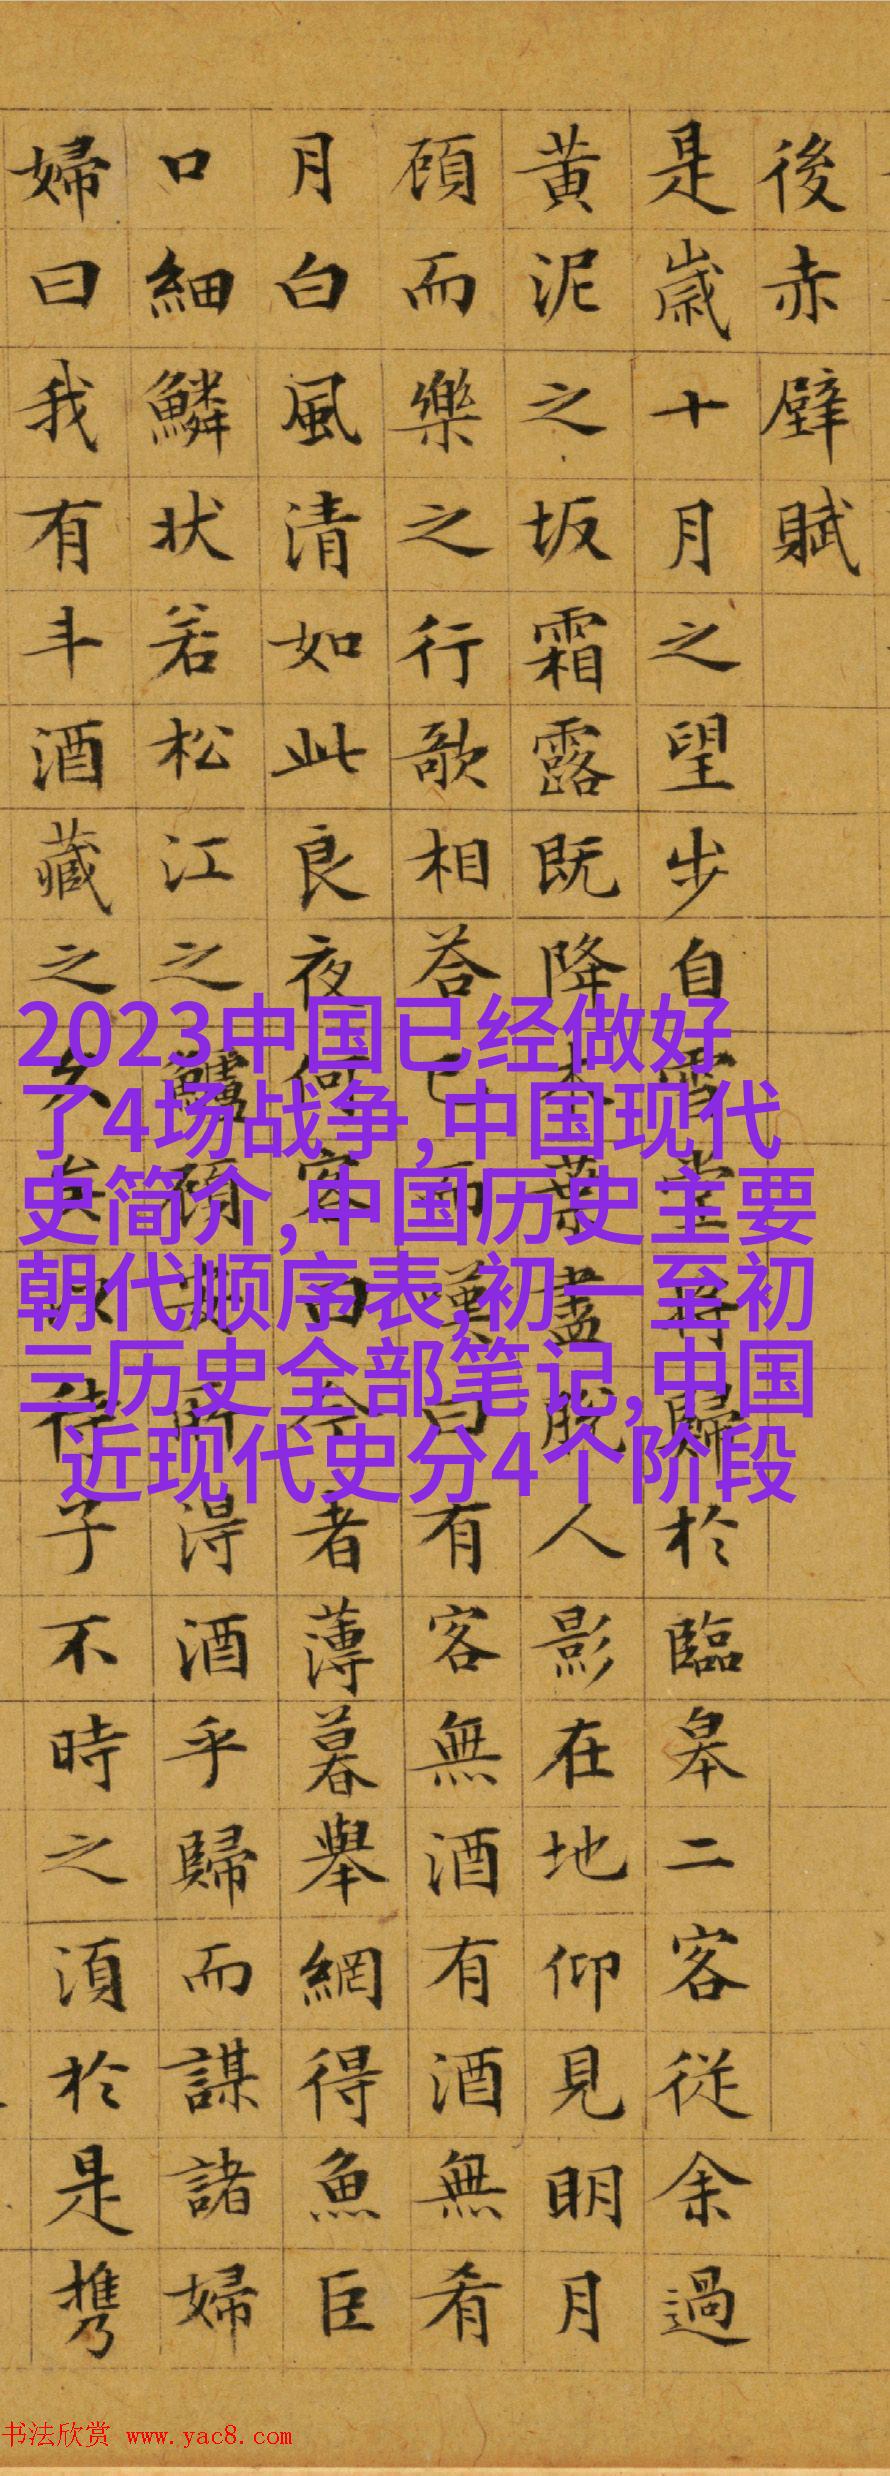 後赤壁賦
是歳十月之望步自雪堂將歸於臨皋二客從余過
黄泥之坂霜露既降木葉盡脱人影在地仰見明月
頋而樂之行歌相荅已而嘆曰有客無酒有酒無肴
月白風清如此良夜何客曰今者薄暮舉網得魚巨
口細鱗状若松江之鱸頋安所得酒乎歸而謀諸婦
婦曰我有斗酒藏之久矣以待子不時之湏於是携
2023中国已经做好
了4场战争,中国现代
史简介,中国历史主要
朝代顺序表,初一至初
三历史全部笔记,中国
近现代史分4个阶段
书法欣赏 www.yac8.com